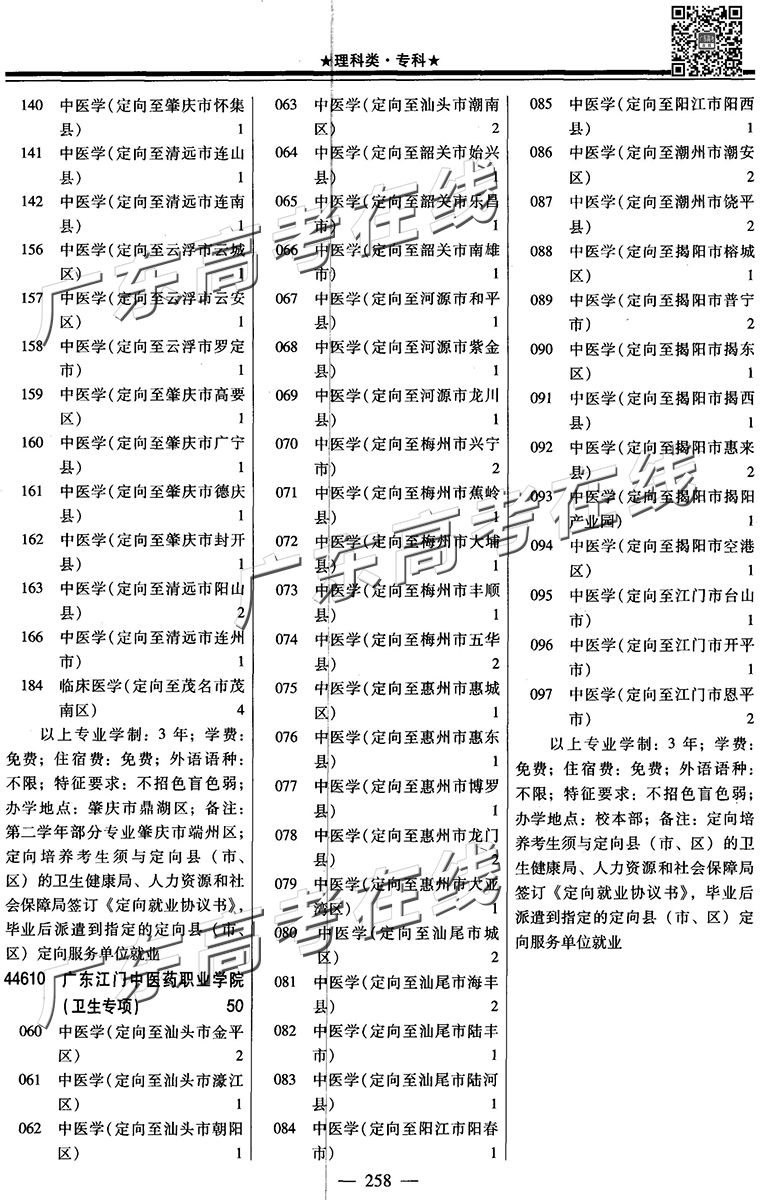 ★理科类·专科★
140 中医学(定向至肇庆市怀集
县) 1
141 中医学(定向至清远市连山
县) 1
142 中医学(定向至清远市连南
县) 1
156 中医学(定向至云浮市云城
区) 1
157 中医学(定向至云浮市云安
区) 1
158 中医学(定向至云浮市罗定
市) 1
159 中医学(定向至肇庆市高要
区) 1
160 中医学(定向至肇庆市广宁
县) 1
161 中医学(定向至肇庆市德庆
县) 1
162 中医学(定向至肇庆市封开
县) 1
163 中医学(定向至清远市阳山
县) 2
166 中医学(定向至清远市连州
市) 1
184 临床医学(定向至茂名市茂
南区) 4
以上专业学制：3 年；学费：
免费；住宿费：免费；外语语种：
不限；特征要求：不招色盲色弱；
办学地点：肇庆市鼎湖区；备注：
第二学年部分专业肇庆市端州区；
定向培养考生须与定向县（市、
区）的卫生健康局、人力资源和社
会保障局签订《定向就业协议书》，
毕业后派遣到指定的定向县（市、
区）定向服务单位就业
44610 广东江门中医药职业学院
(卫生专项) 50
060 中医学(定向至汕头市金平
区) 2
061 中医学(定向至汕头市濠江
区) 1
062 中医学(定向至汕头市朝阳
区) 1
063 中医学(定向至汕头市潮南
区) 2
064 中医学(定向至韶关市始兴
县) 1
065 中医学(定向至韶关市乐昌
市) 1
066 中医学(定向至韶关市南雄
市) 1
067 中医学(定向至河源市和平
县) 1
068 中医学(定向至河源市紫金
县) 1
069 中医学(定向至河源市龙川
县) 1
070 中医学(定向至梅州市兴宁
市) 2
071 中医学(定向至梅州市蕉岭
县) 1
072 中医学(定向至梅州市大埔
县) 1
073 中医学(定向至梅州市丰顺
县) 1
074 中医学(定向至梅州市五华
县) 2
075 中医学(定向至惠州市惠城
区) 1
076 中医学(定向至惠州市惠东
县) 1
077 中医学(定向至惠州市博罗
县) 1
078 中医学(定向至惠州市龙门
县) 2
079 中医学(定向至惠州市大亚
湾区) 1
080 中医学(定向至汕尾市城
区) 2
081 中医学(定向至汕尾市海丰
县) 2
082 中医学(定向至汕尾市陆丰
市) 1
083 中医学(定向至汕尾市陆河
县) 1
084 中医学(定向至阳江市阳春
市) 1
085 中医学(定向至阳江市阳西
县) 1
086 中医学(定向至潮州市潮安
区) 2
087 中医学(定向至潮州市饶平
县) 2
088 中医学(定向至揭阳市榕城
区) 1
089 中医学(定向至揭阳市普宁
市) 2
090 中医学(定向至揭阳市揭东
区) 1
091 中医学(定向至揭阳市揭西
县) 1
092 中医学(定向至揭阳市惠来
县) 2
093 中医学(定向至揭阳市揭阳
产业园) 1
094 中医学(定向至揭阳市空港
区) 1
095 中医学(定向至江门市台山
市) 1
096 中医学(定向至江门市开平
市) 1
097 中医学(定向至江门市恩平
市) 2
以上专业学制：3 年；学费：
免费；住宿费：免费；外语语种：
不限；特征要求：不招色盲色弱；
办学地点：校本部；备注：定向培
养考生须与定向县（市、区）的卫
生健康局、人力资源和社会保障局
签订《定向就业协议书》，毕业后
派遣到指定的定向县（市、区）定
向服务单位就业
— 258 —
广东高考在线
广东高考在线
广东高考在线